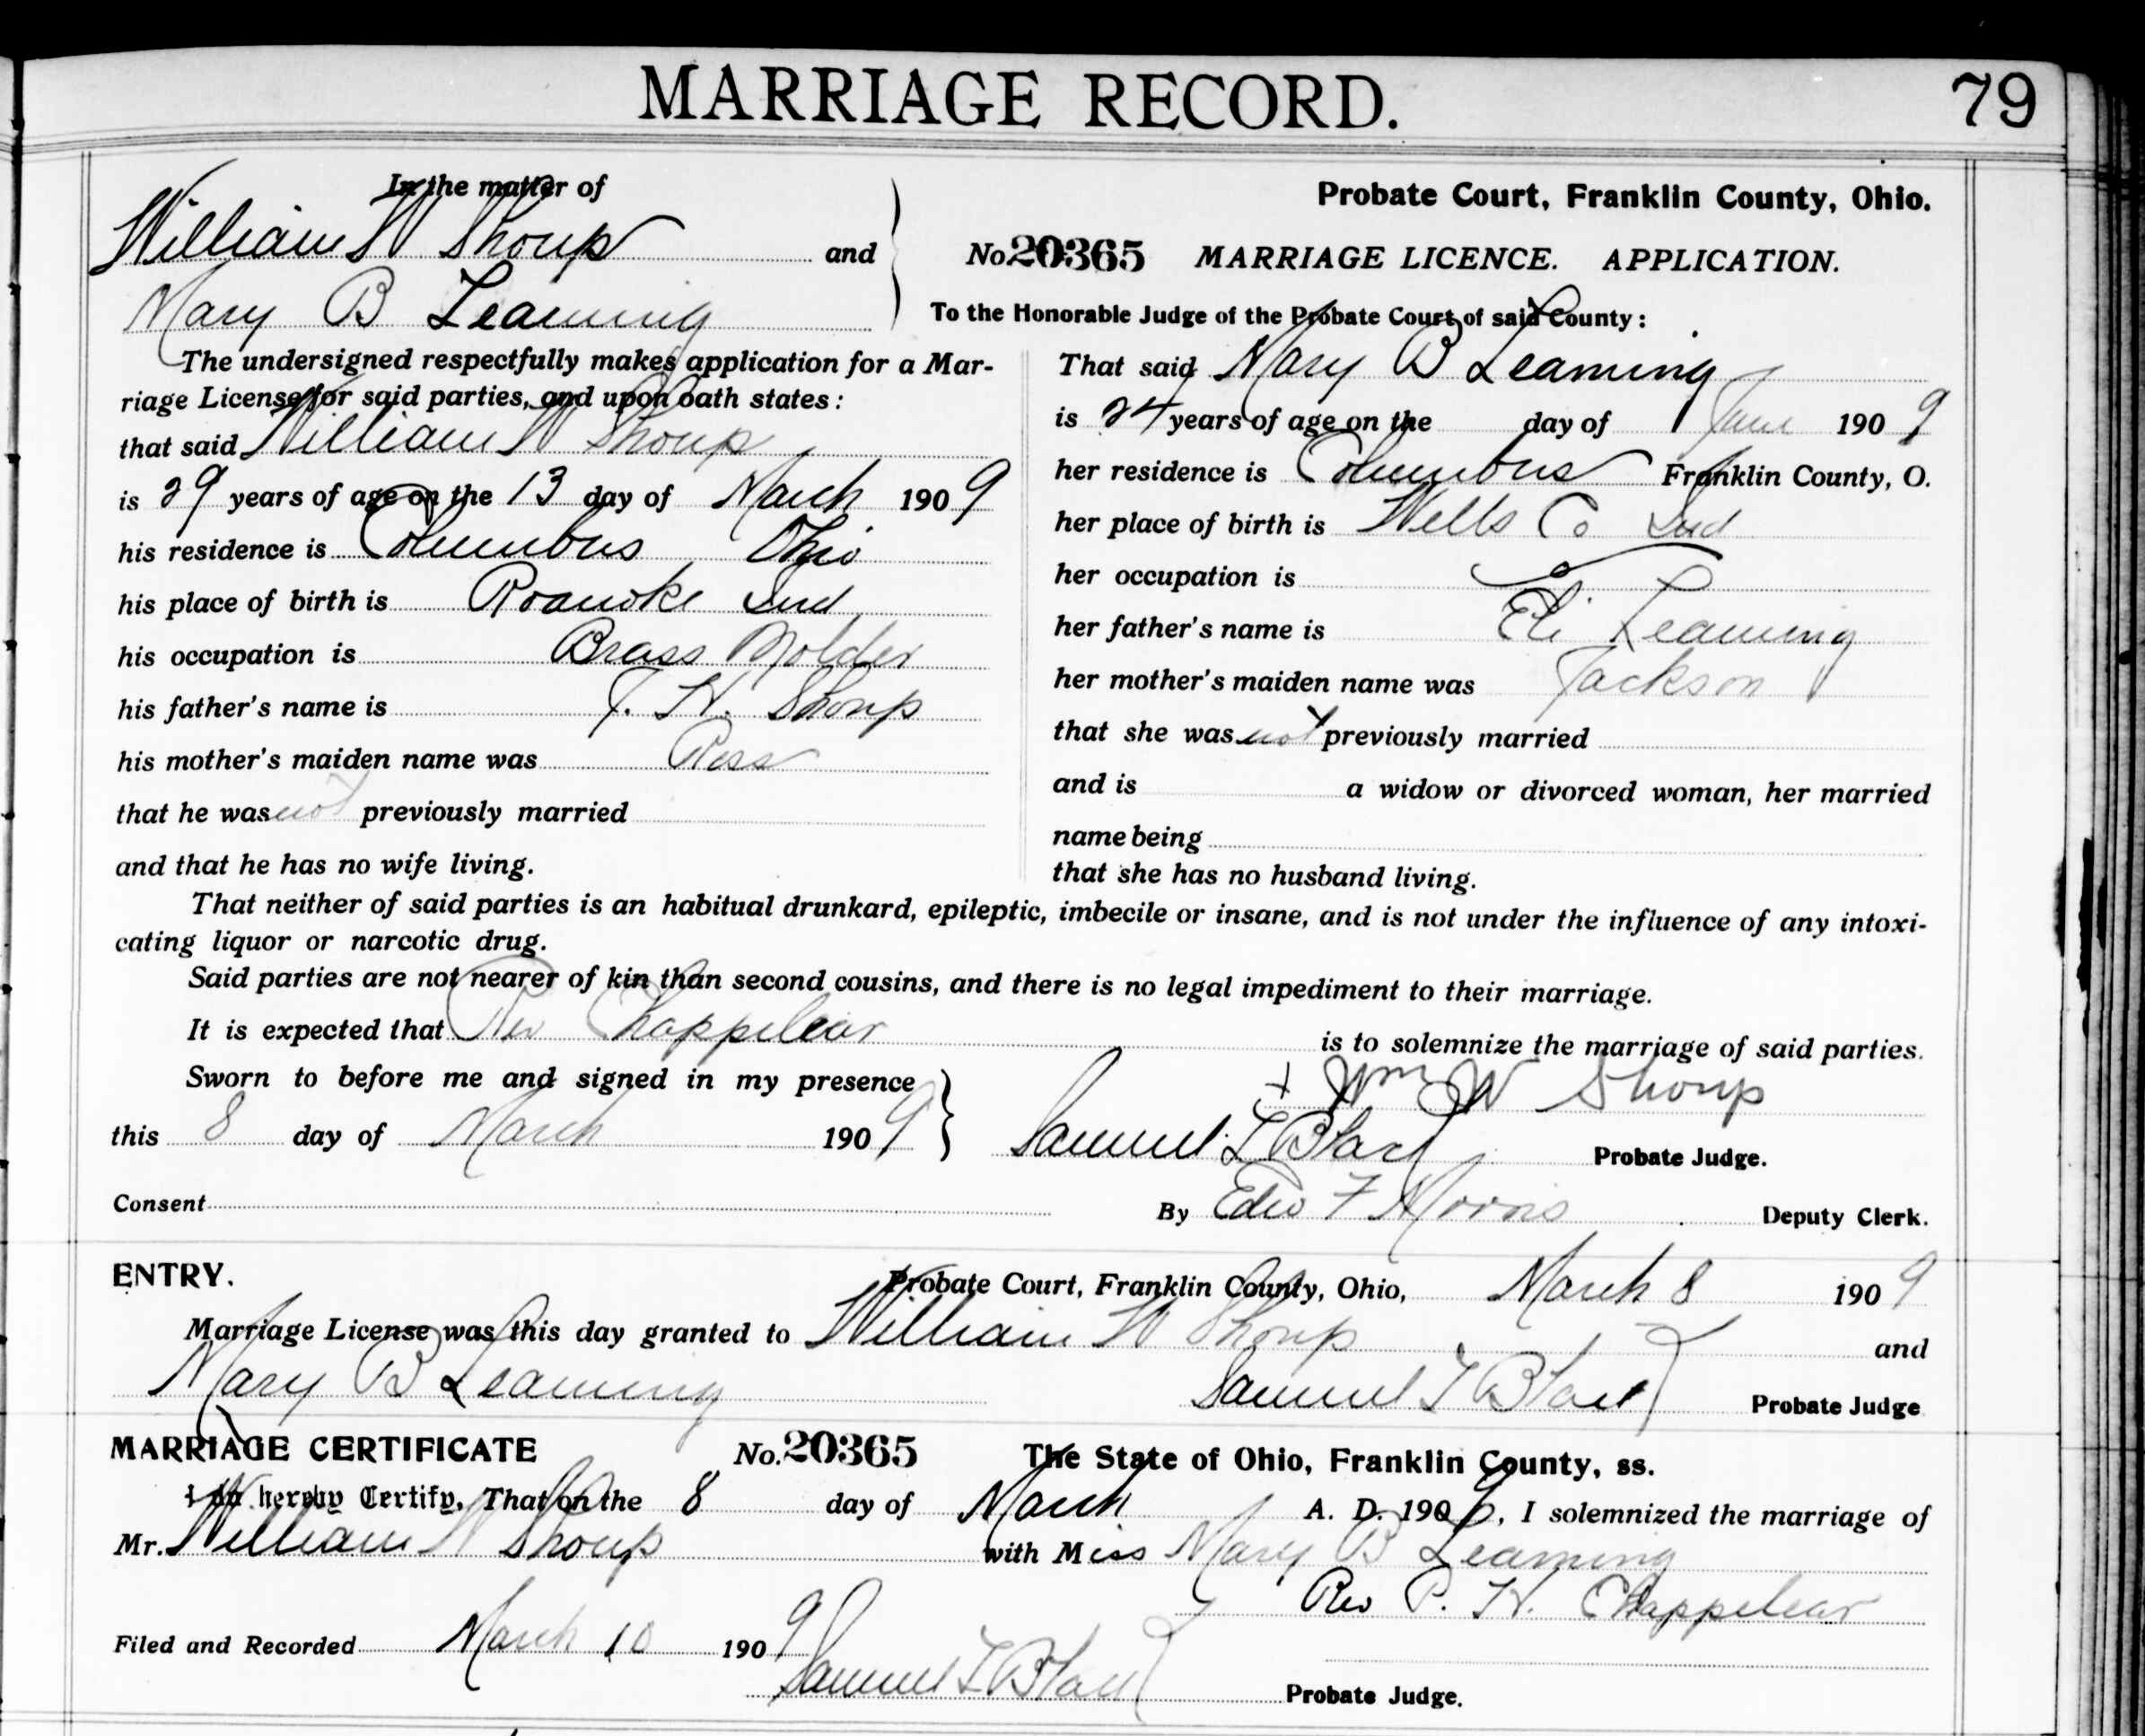 MARRIAGE RECORD.
79
In the matter of
William W Shoup and
Mary B Leaming
Probate Court, Franklin County, Ohio.
No 20365 MARRIAGE LICENCE. APPLICATION.
To the Honorable Judge of the Probate Court of said County:
The undersigned respectfully makes application for a Mar-
riage License for said parties, and upon oath states:
that said William W Shoup
is 29 years of age on the 13 day of March 1909
his residence is Columbus Ohio
his place of birth is Roanoke Ind
his occupation is Brass Molder
his father's name is T. H. Shoup
his mother's maiden name was Ross
that he was not previously married
and that he has no wife living.
That said Mary B Leaming
is 24 years of age on the day of June 1909
her residence is Columbus Franklin County, O.
her place of birth is Wells Co Ind
her occupation is
her father's name is Eli Leaming
her mother's maiden name was Jackson
that she was not previously married
and is a widow or divorced woman, her married
name being
that she has no husband living.
That neither of said parties is an habitual drunkard, epileptic, imbecile or insane, and is not under the influence of any intoxi-
cating liquor or narcotic drug.
Said parties are not nearer of kin than second cousins, and there is no legal impediment to their marriage.
It is expected that Rev Chappelear is to solemnize the marriage of said parties.
Sworn to before me and signed in my presence
this 8 day of March 1909
+ Wm W Shoup
Samuel L Black Probate Judge.
Consent
By Edw F Morris Deputy Clerk.
ENTRY.
Probate Court, Franklin County, Ohio, March 8 1909
Marriage License was this day granted to William W Shoup and
Mary B Leaming
Samuel L Black Probate Judge
MARRIAGE CERTIFICATE No. 20365 The State of Ohio, Franklin County, ss.
I do hereby Certify, That on the 8 day of March A. D. 1909, I solemnized the marriage of
Mr. William W Shoup with Miss Mary B Leaming
Rev P. H. Chappelear
Filed and Recorded March 10 1909
Samuel L Black Probate Judge.